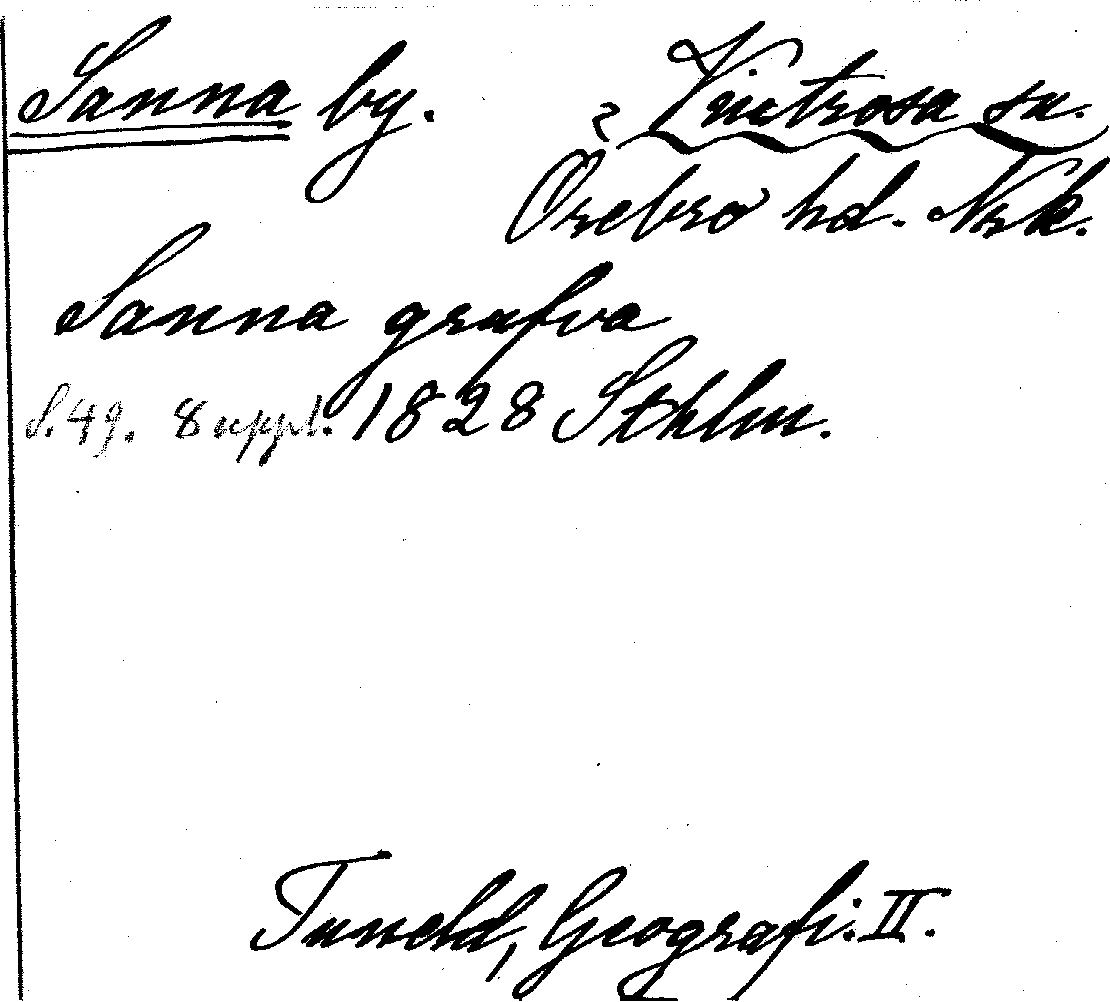 Sanna by. Vintrosa sn.
Örebro hd. Nrk.
Sanna grufva
S. 49. 8 uppl. 1828 Sthlm.
Tuneld, Geografi. II.